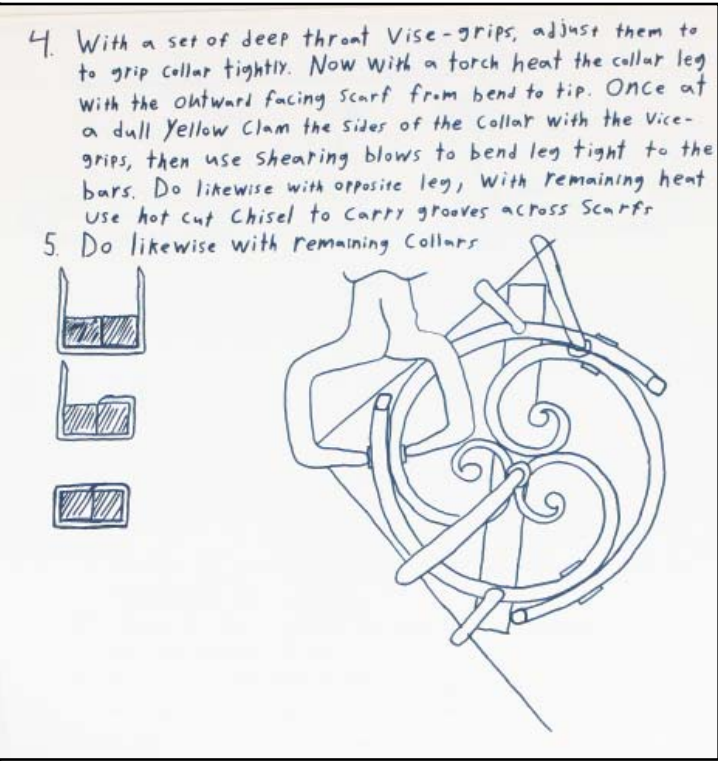 4. With a set of deep throat Vise-grips, adjust them to
to grip collar tightly. Now with a torch heat the collar leg
with the outward facing scarf from bend to tip. Once at
a dull yellow Clam the sides of the Collar with the Vice-
grips, then use shearing blows to bend leg tight to the
bars. Do likewise with opposite leg, With remaining heat
use hot cut Chisel to carry grooves across Scarfs
5. Do likewise with remaining Collars